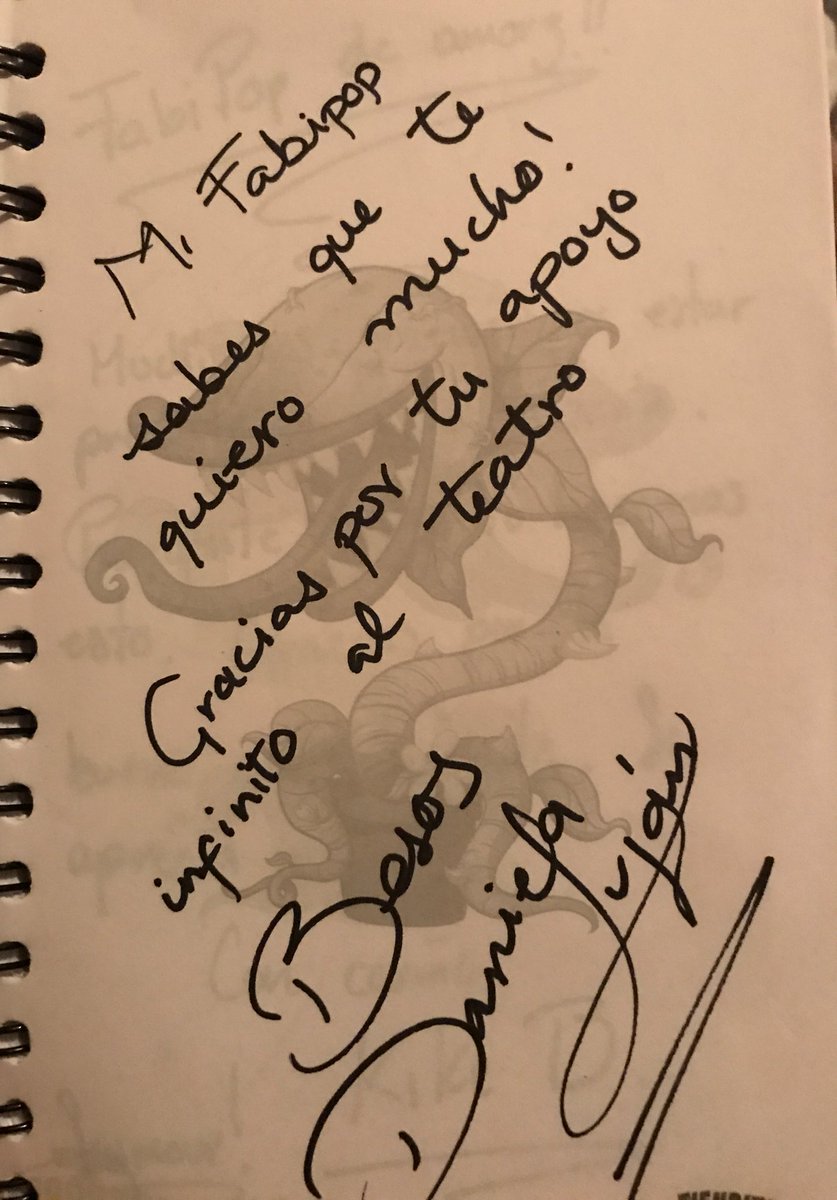 Mi Fabipop
sabes que te
quiero mucho!
Gracias por tu apoyo
infinito al teatro
Besos
Daniela Luján